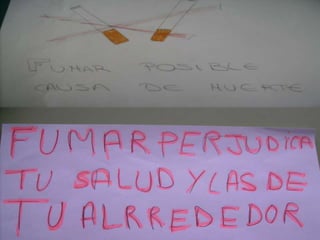 FUMAR POSIBLE
CAUSA DE MUERTE
FUMAR PERJUDICA
TU SALUD Y LAS DE
TU ALRREDEDOR